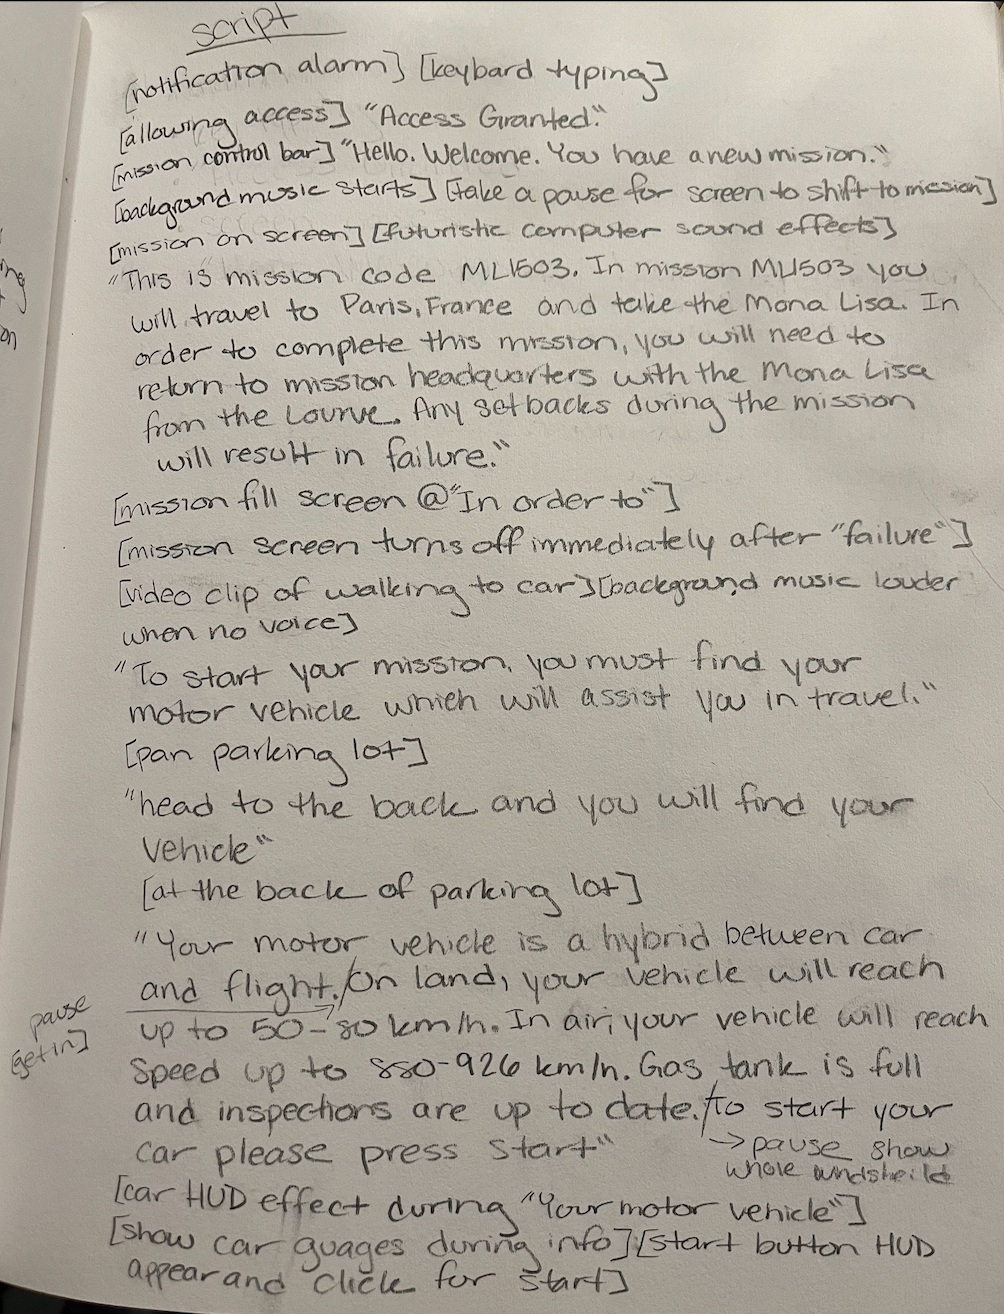 script
[notification alarm] [keybard typing]
[allowing access] "Access Granted."
[mission control bar] "Hello. Welcome. You have a new mission."
[background music starts] [take a pause for screen to shift to mission]
[mission on screen] [futuristic computer sound effects]
"This is mission code ML1503. In mission ML1503 you
will travel to Paris, France and take the Mona Lisa. In
order to complete this mission, you will need to
return to mission headquarters with the Mona Lisa
from the Lourve. Any setbacks during the mission
will result in failure."
[mission fill screen @ "In order to"]
[mission screen turns off immediately after "failure"]
[video clip of walking to car] [background music louder
when no voice]
"To start your mission, you must find your
motor vehicle which will assist you in travel."
[pan parking lot]
"head to the back and you will find your
vehicle"
[at the back of parking lot]
"Your motor vehicle is a hybrid between car
and flight. / On land, your vehicle will reach
pause
[get in]
up to 50-80 km/h. In air, your vehicle will reach
speed up to 880-926 km/h. Gas tank is full
and inspections are up to date. / to start your
car please press start"
→ pause show
whole windsheild
[car HUD effect during "Your motor vehicle"]
[show car guages during info] [start button HUD
appear and click for start]
ing
on